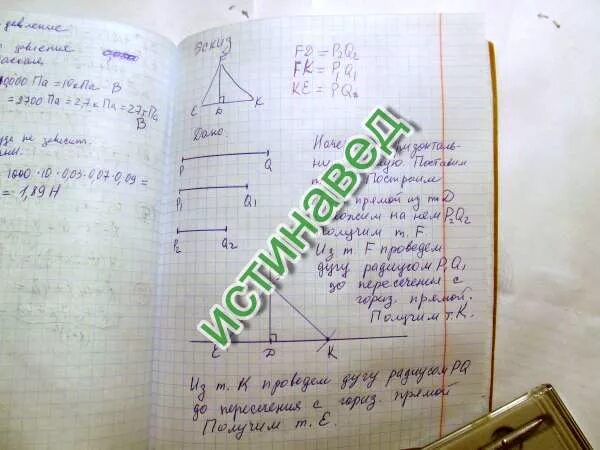 давление
давления
10000 Па = 10 кПа
В
= 2700 Па = 2,7 кПа = 27 гПа
В
не зависит.
1000 · 10 · 0,03 · 0,07 · 0,09 =
= 1,89 Н
Эскиз
F
E D K
FD = P₂Q₂
FK = P₁Q₁
KE = PQ
Дано:
P Q
P₁ Q₁
P₂ Q₂
прямую. Поставим
Построим
прямой из т. D
на нём P₂Q₂
Получим т. F
Из т. F проведем
дугу радиусом P₁Q₁
до пересечения с
гориз. прямой.
Получим т. К.
E D K
Из т. К проведем дугу радиусом PQ
до пересечения с гориз. прямой
Получим т. E.
ИСТИНАВЕД